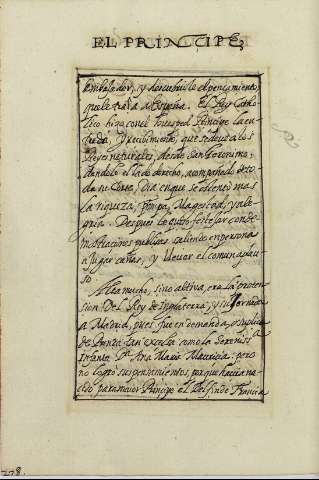 EL PRINCIPE,
Embajador, y descubrirle el pensamiento,
que le traia a España. El Rey Cato
lico hizo con el huesped Principe la en
trada, y recibimiento, que se deue a los
Reyes naturales, desde San Geronimo,
dandole el lado derecho, acompañado de to
da su Corte; Dia en que se ostentò mas
la riqueza, Pompa, Magestad, y ale
gria. Despues le quiso festejar con de
mostraciones publicas saliendo en persona
a jugar cañas, y lleuar el comun aplau
so.
Alta mucho, sino altiva, era la preten
sion Del Rey de Inglaterra, y su
a Madrid, pues fue en demanda, y
de Prenda tan excelsa como la Sereniss.
Infanta, Dª Ana Maria Mauricia: pero
no logró sus pensamientos, porque havia na
cido para mayor Principe el Delfin de Francia
278.